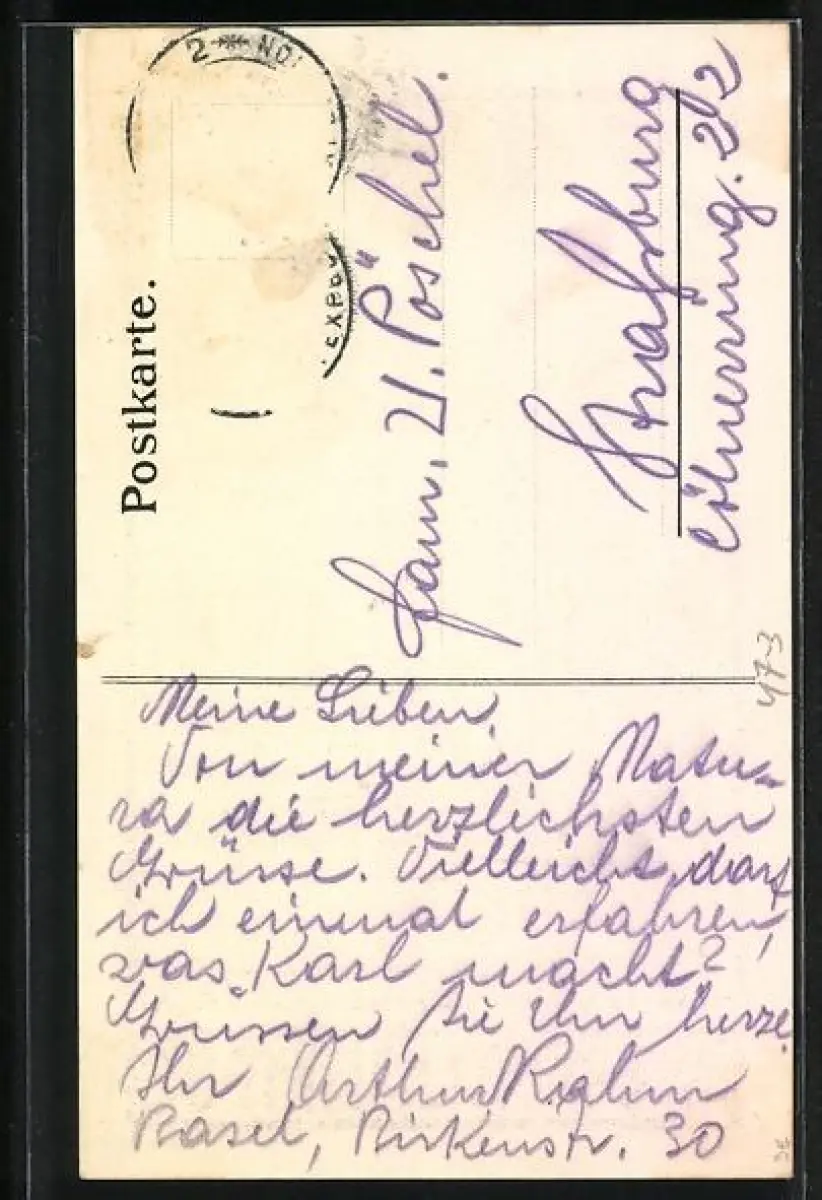 Postkarte.
2 NO
EXP
Fam. U. Pöschel.
Straßburg
Cölnerring. 22
47-3
Meine Lieben,
Von meiner Matu-
ra die herzlichsten
Grüsse. Vielleicht darf
ich einmal erfahren,
was Karl macht?
Grüssen Sie ihn herzl.
Ihr Arthur Rahm
Basel, Birkenstr. 30